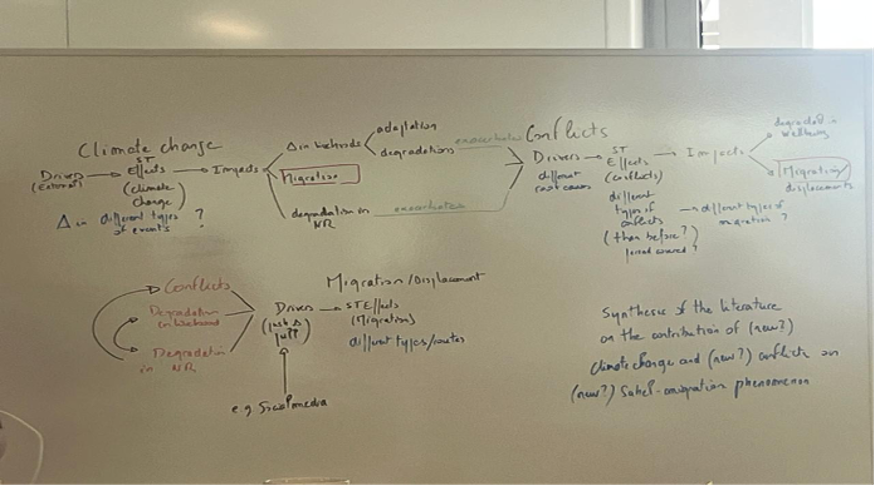 Climate change
Drivers
(External)
ST
Effects
(climate
change)
Impacts
Δ in different types ?
of events
Δ in livelihoods
adaptation
degradations
exacerbates
Migration
degradation in
NR
exacerbates
Conflicts
Drivers
different
root causes
ST
Effects
(conflicts)
different
types of
conflicts
(than before?)
period covered?
different types of
migration ?
Impacts
degraded in
wellbeing
Migration/
displacements
Conflicts
Degradation
in livelihood
Degradation
in NR
Migration/Displacement
Drivers
(push &
pull)
ST Effects
(Migration)
different types/routes
e.g. Social media
Synthesis of the literature
on the contribution of (new?)
climate change and (new?) conflicts on
(new?) Sahel-emigration phenomenon